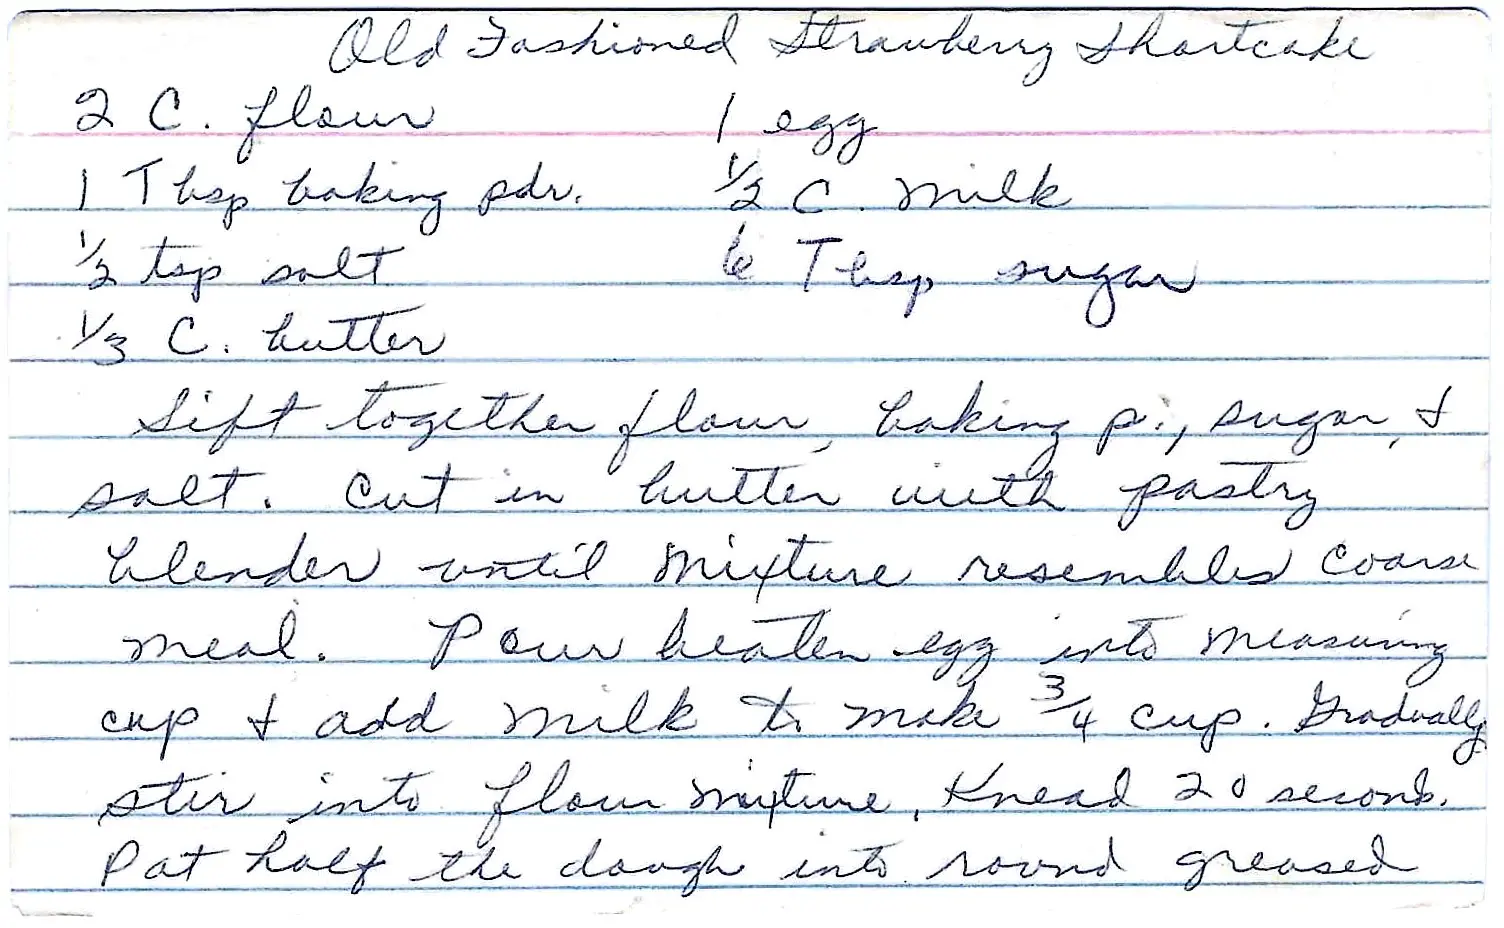 Old Fashioned Strawberry Shortcake
2 C. flour 1 egg
1 Tbsp baking pdr. 1/2 C. milk
1/2 tsp salt 6 Tbsp sugar
1/3 C. butter
Sift together flour, baking p., sugar, &
salt. Cut in butter with pastry
blender until mixture resembles coarse
meal. Pour beaten egg into measuring
cup & add milk to make 3/4 cup. Gradually
stir into flour mixture. Knead 20 seconds.
Pat half the dough into round greased